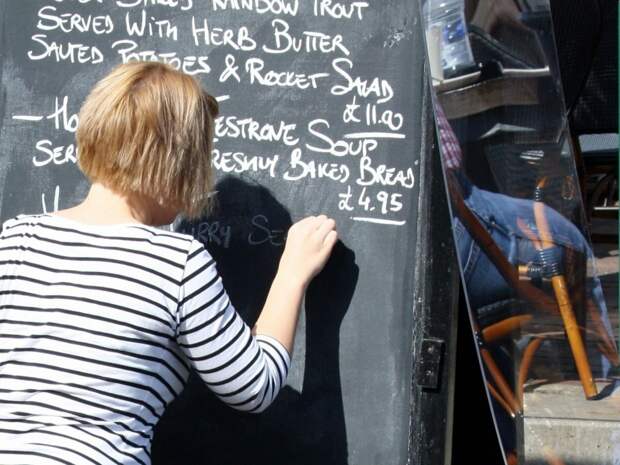 RAINBOW TROUT
SERVED WITH HERB BUTTER
SAUTED POTATOES & ROCKET SALAD
£11.00
ESTRONE SOUP
SER RESHLY BAKED BREAD
£4.95
H RRY SE